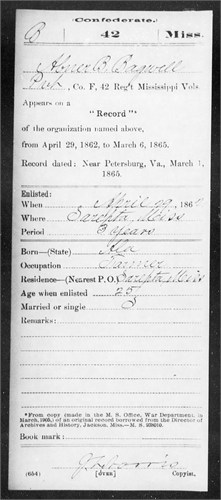 Confederate.
B 42 Miss.
Abner B. Bagwell
Pvt, Co. F, 42 Reg't Mississippi Vols.
Appears on a
"Record"*
of the organization named above,
from April 29, 1862, to March 6, 1865.
Record dated: Near Petersburg, Va., March 1,
1865.
Enlisted:
When April 29, 186
Where Sarepta, Miss
Period 3 years
Born—(State) Ala
Occupation Farmer
Residence—(Nearest P. O.) Sarepta Miss
Age when enlisted 25
Married or single S
Remarks:
*From copy (made in the M. S. Office, War Department, in
March, 1905,) of an original record borrowed from the Director of
Archives and History, Jackson, Miss.—M. S.
Book mark:
(654) Copyist.